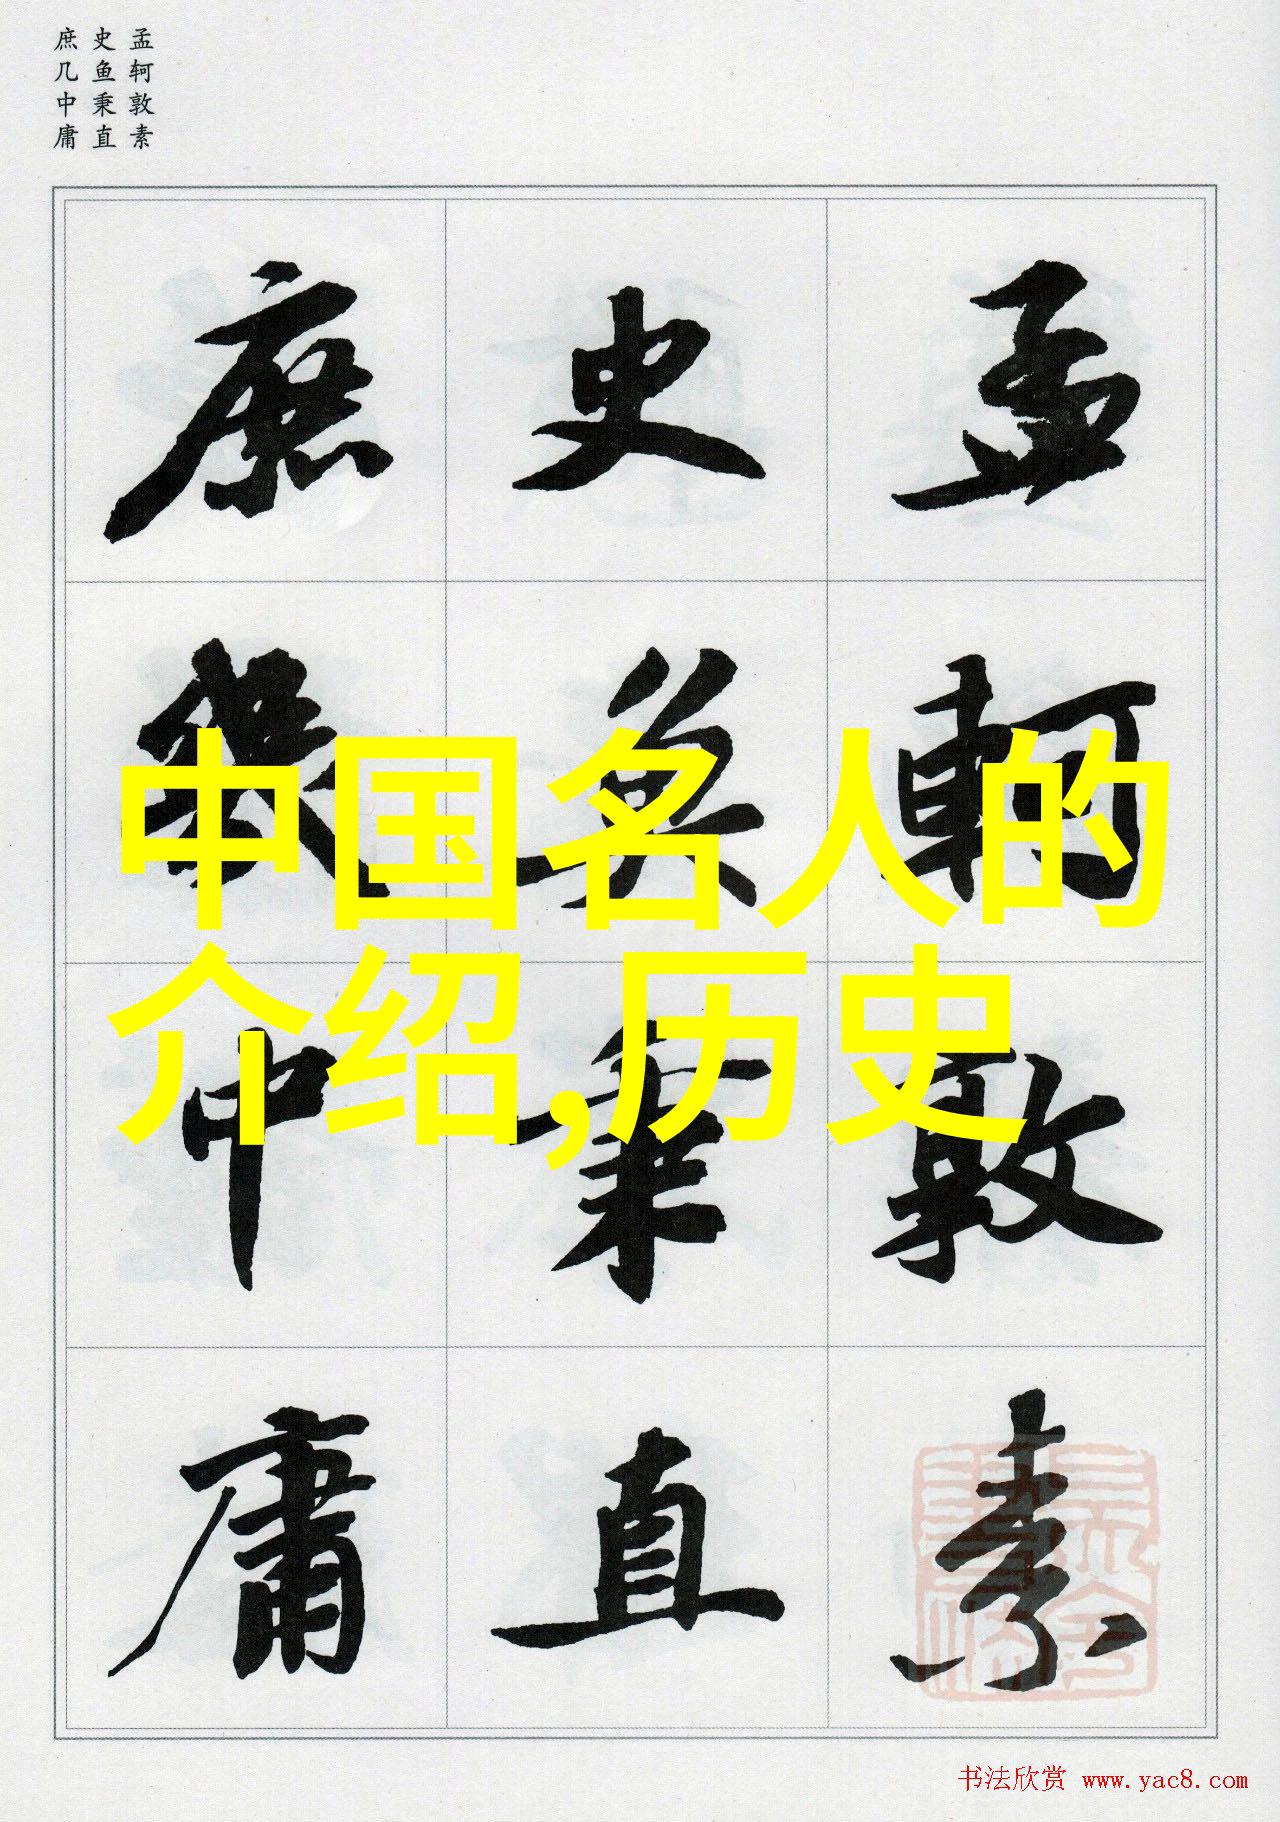 孟轲敦素
史鱼秉直
庶几中庸
孟軻敦素
史魚秉直
庶幾中庸
中国名人的
介绍,历史
书法欣赏 www.yac8.com